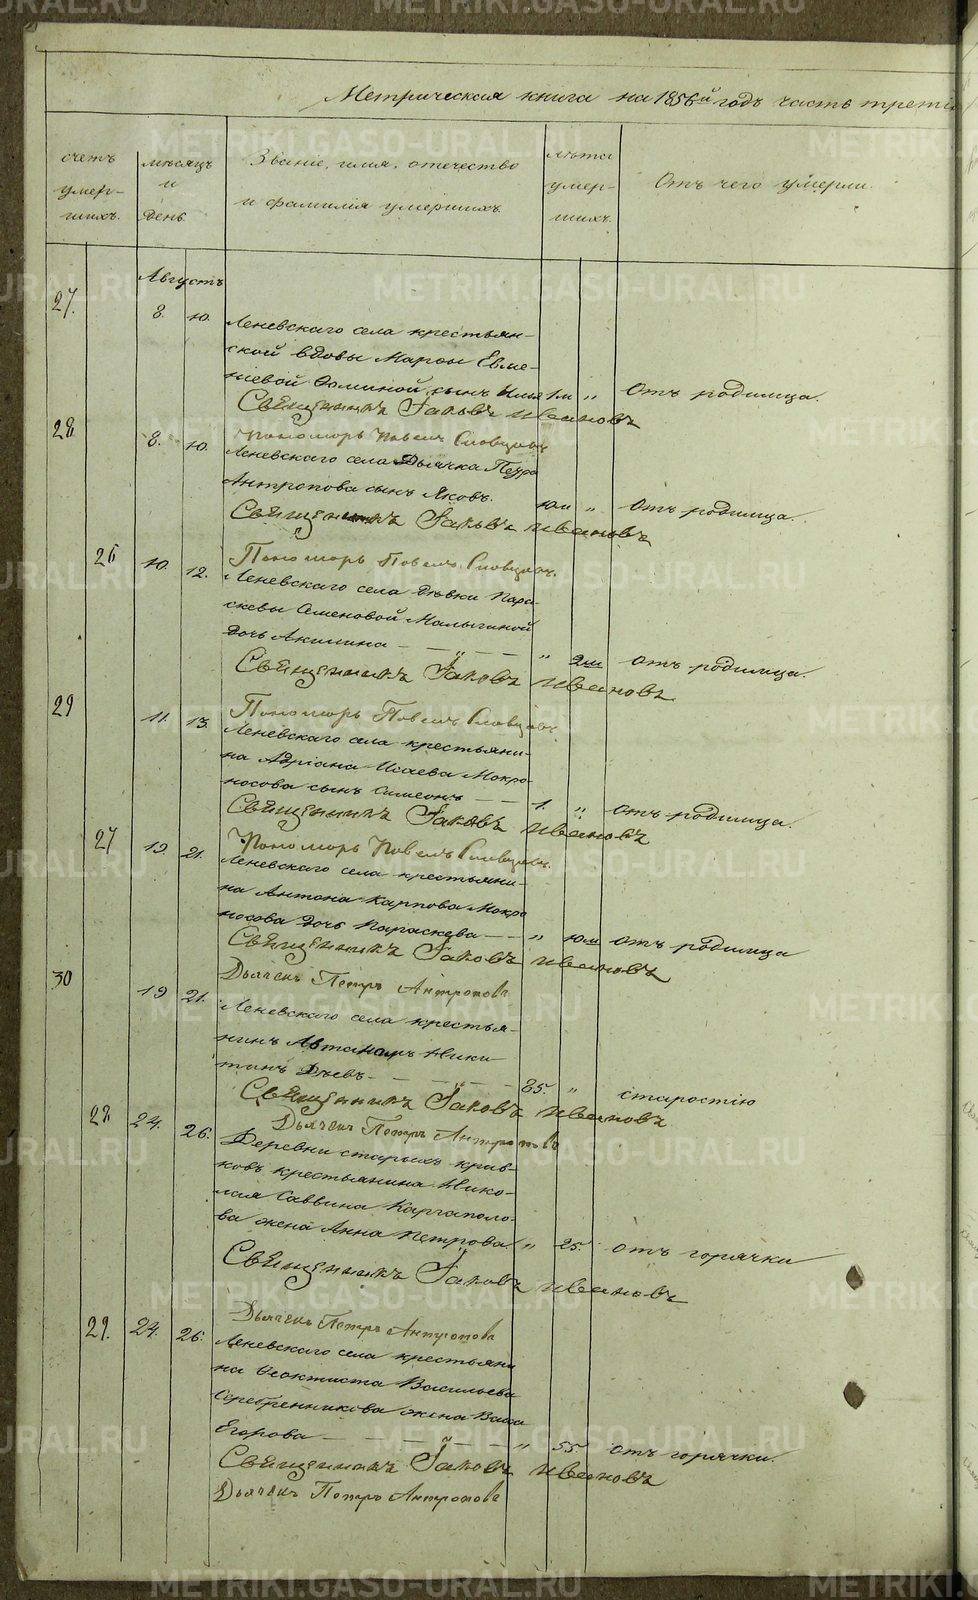 Метрическая книга на 1856й годъ часть трет
счетъ умер-шихъ.
мѣсяцъ и день.
Званіе, имя, отечество
и фамилія умершихъ.
лѣта умер-шихъ.
Отъ чего умерли.
Августъ
27. 8. 10.
Леневскаго села крестьян-
ской вдовы Марфы Евме-
ніевой Фоминой сынъ 1м " Отъ родимца.
Священникъ Іаковъ Ивановъ
Пономарь Павелъ Словцовъ
28 8. 10.
Леневскаго села Дьячка Петра
Антропова сынъ Яковъ. 10м " Отъ родимца.
Священникъ Іаковъ Ивановъ
Пономарь Павелъ Словцовъ.
26 10. 12.
Леневскаго села дѣвки Пара-
скевы Семеновой Малыгиной
дочь Акилина " 2м отъ родимца.
Священникъ Іаковъ Ивановъ
Пономарь Павелъ Словцовъ
29 11. 13.
Леневскаго села крестьяни-
на Адріана Исаева Мокро-
носова сынъ Симеонъ 1. " отъ родимца.
Священникъ Іаковъ Ивановъ
Пономарь Павелъ Словцовъ
27 19. 21.
Леневскаго села крестьяни-
на Антона Карпова Мокро
носова дочь Параскева " 10м отъ родимца
Священникъ Іаковъ Ивановъ
Дьячекъ Петръ Антропова
30 19 21.
Леневскаго села крестья-
нинъ Автаномъ Ники-
тинъ Дѣевъ 85. " старостію
Священникъ Іаковъ Ивановъ
Дьячекъ Петръ Антропова
28 24. 26.
Деревни старыхъ крив-
ковъ крестьянина Нико-
лая Саввина Каргаполо-
ва жена Анна Петрова " 25. отъ горячки
Священникъ Іаковъ Ивановъ
Дьячекъ Петръ Антропова
29. 24. 26.
Леневскаго села крестьяни
на Феоктиста Васильева
Серебренникова жена Васса
Егорова " 55 отъ горячки.
Священникъ Іаковъ Ивановъ
Дьячекъ Петръ Антропова
METRIKI.GASO-URAL.RU